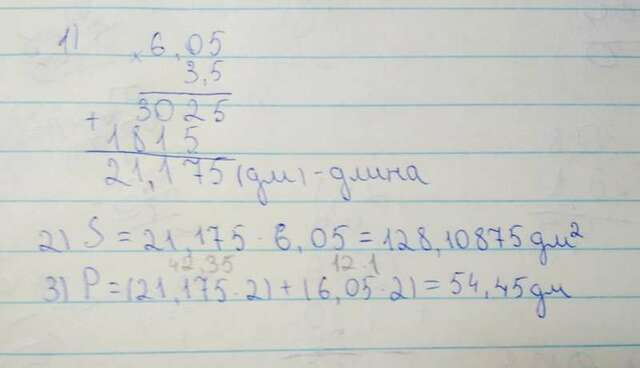 1) × 6,05
3,5
3025
+ 1815
21,175 (дм) - длина
2) S = 21,175 · 6,05 = 128,10875 дм²
42,35 12.1
3) P = (21,175 · 2) + (6,05 · 2) = 54,45 дм